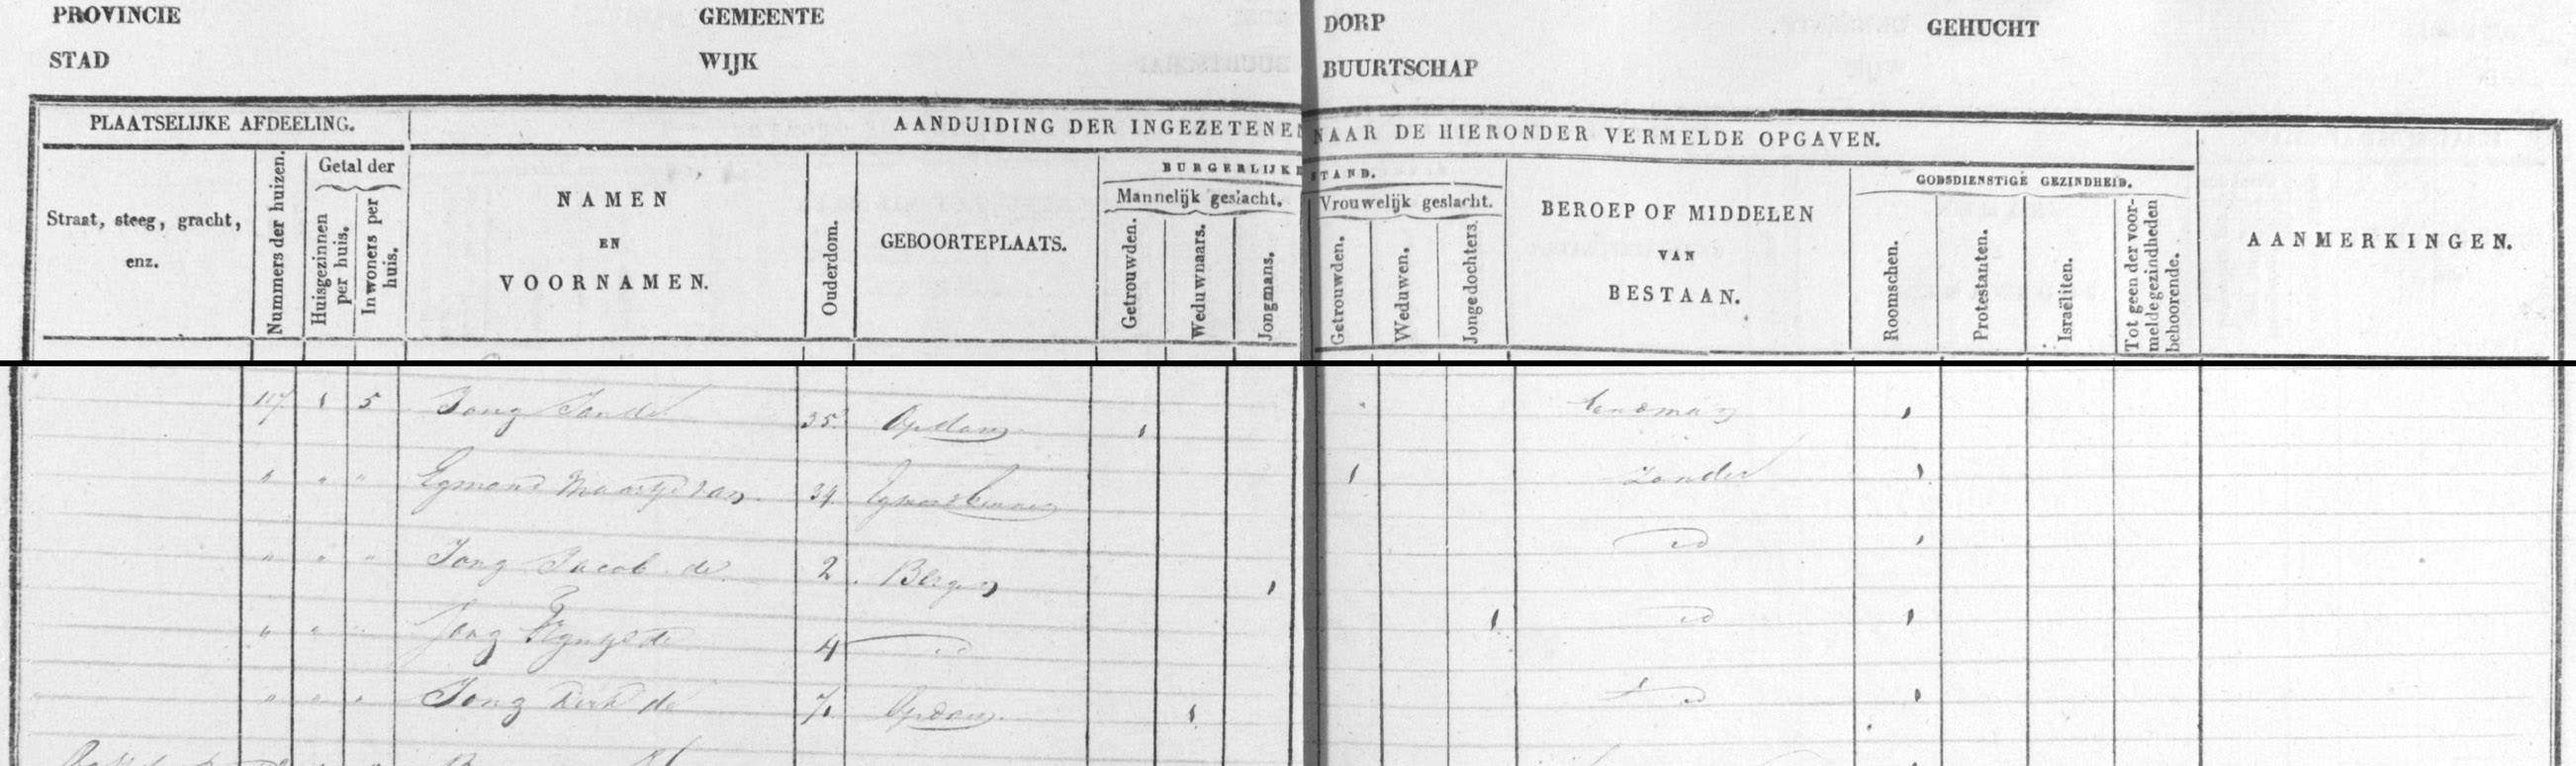 PROVINCIE GEMEENTE DORP GEHUCHT
STAD WIJK BUURTSCHAP
PLAATSELIJKE AFDEELING. AANDUIDING DER INGEZETENEN NAAR DE HIERONDER VERMELDE OPGAVEN.
Straat, steeg, gracht, enz.
Nummers der huizen.
Getal der
Huisgezinnen per huis.
Inwoners per huis.
NAMEN
EN
VOORNAMEN.
Ouderdom.
GEBOORTEPLAATS.
BURGERLIJKE STAND.
Mannelijk geslacht.
Getrouwden.
Weduwnaars.
Jongmans.
Vrouwelijk geslacht.
Getrouwden.
Weduwen.
Jongedochters.
BEROEP OF MIDDELEN
VAN
BESTAAN.
GODSDIENSTIGE GEZINDHEID.
Roomschen.
Protestanten.
Israëliten.
Tot geen der voor-
melde gezindheden
behoorende.
AANMERKINGEN.
117 1 5 Jong Jan de 35 Opdam 1 Landman 1
" " " Egmond Maartje van 34 Egmond binnen 1 Zonder 1
" " " Jong Jacob de 2 Bergen 1 id 1
" " " Jong de 4 id 1 id 1
" " " Jong Dirk de 71 Opdam 1 id 1